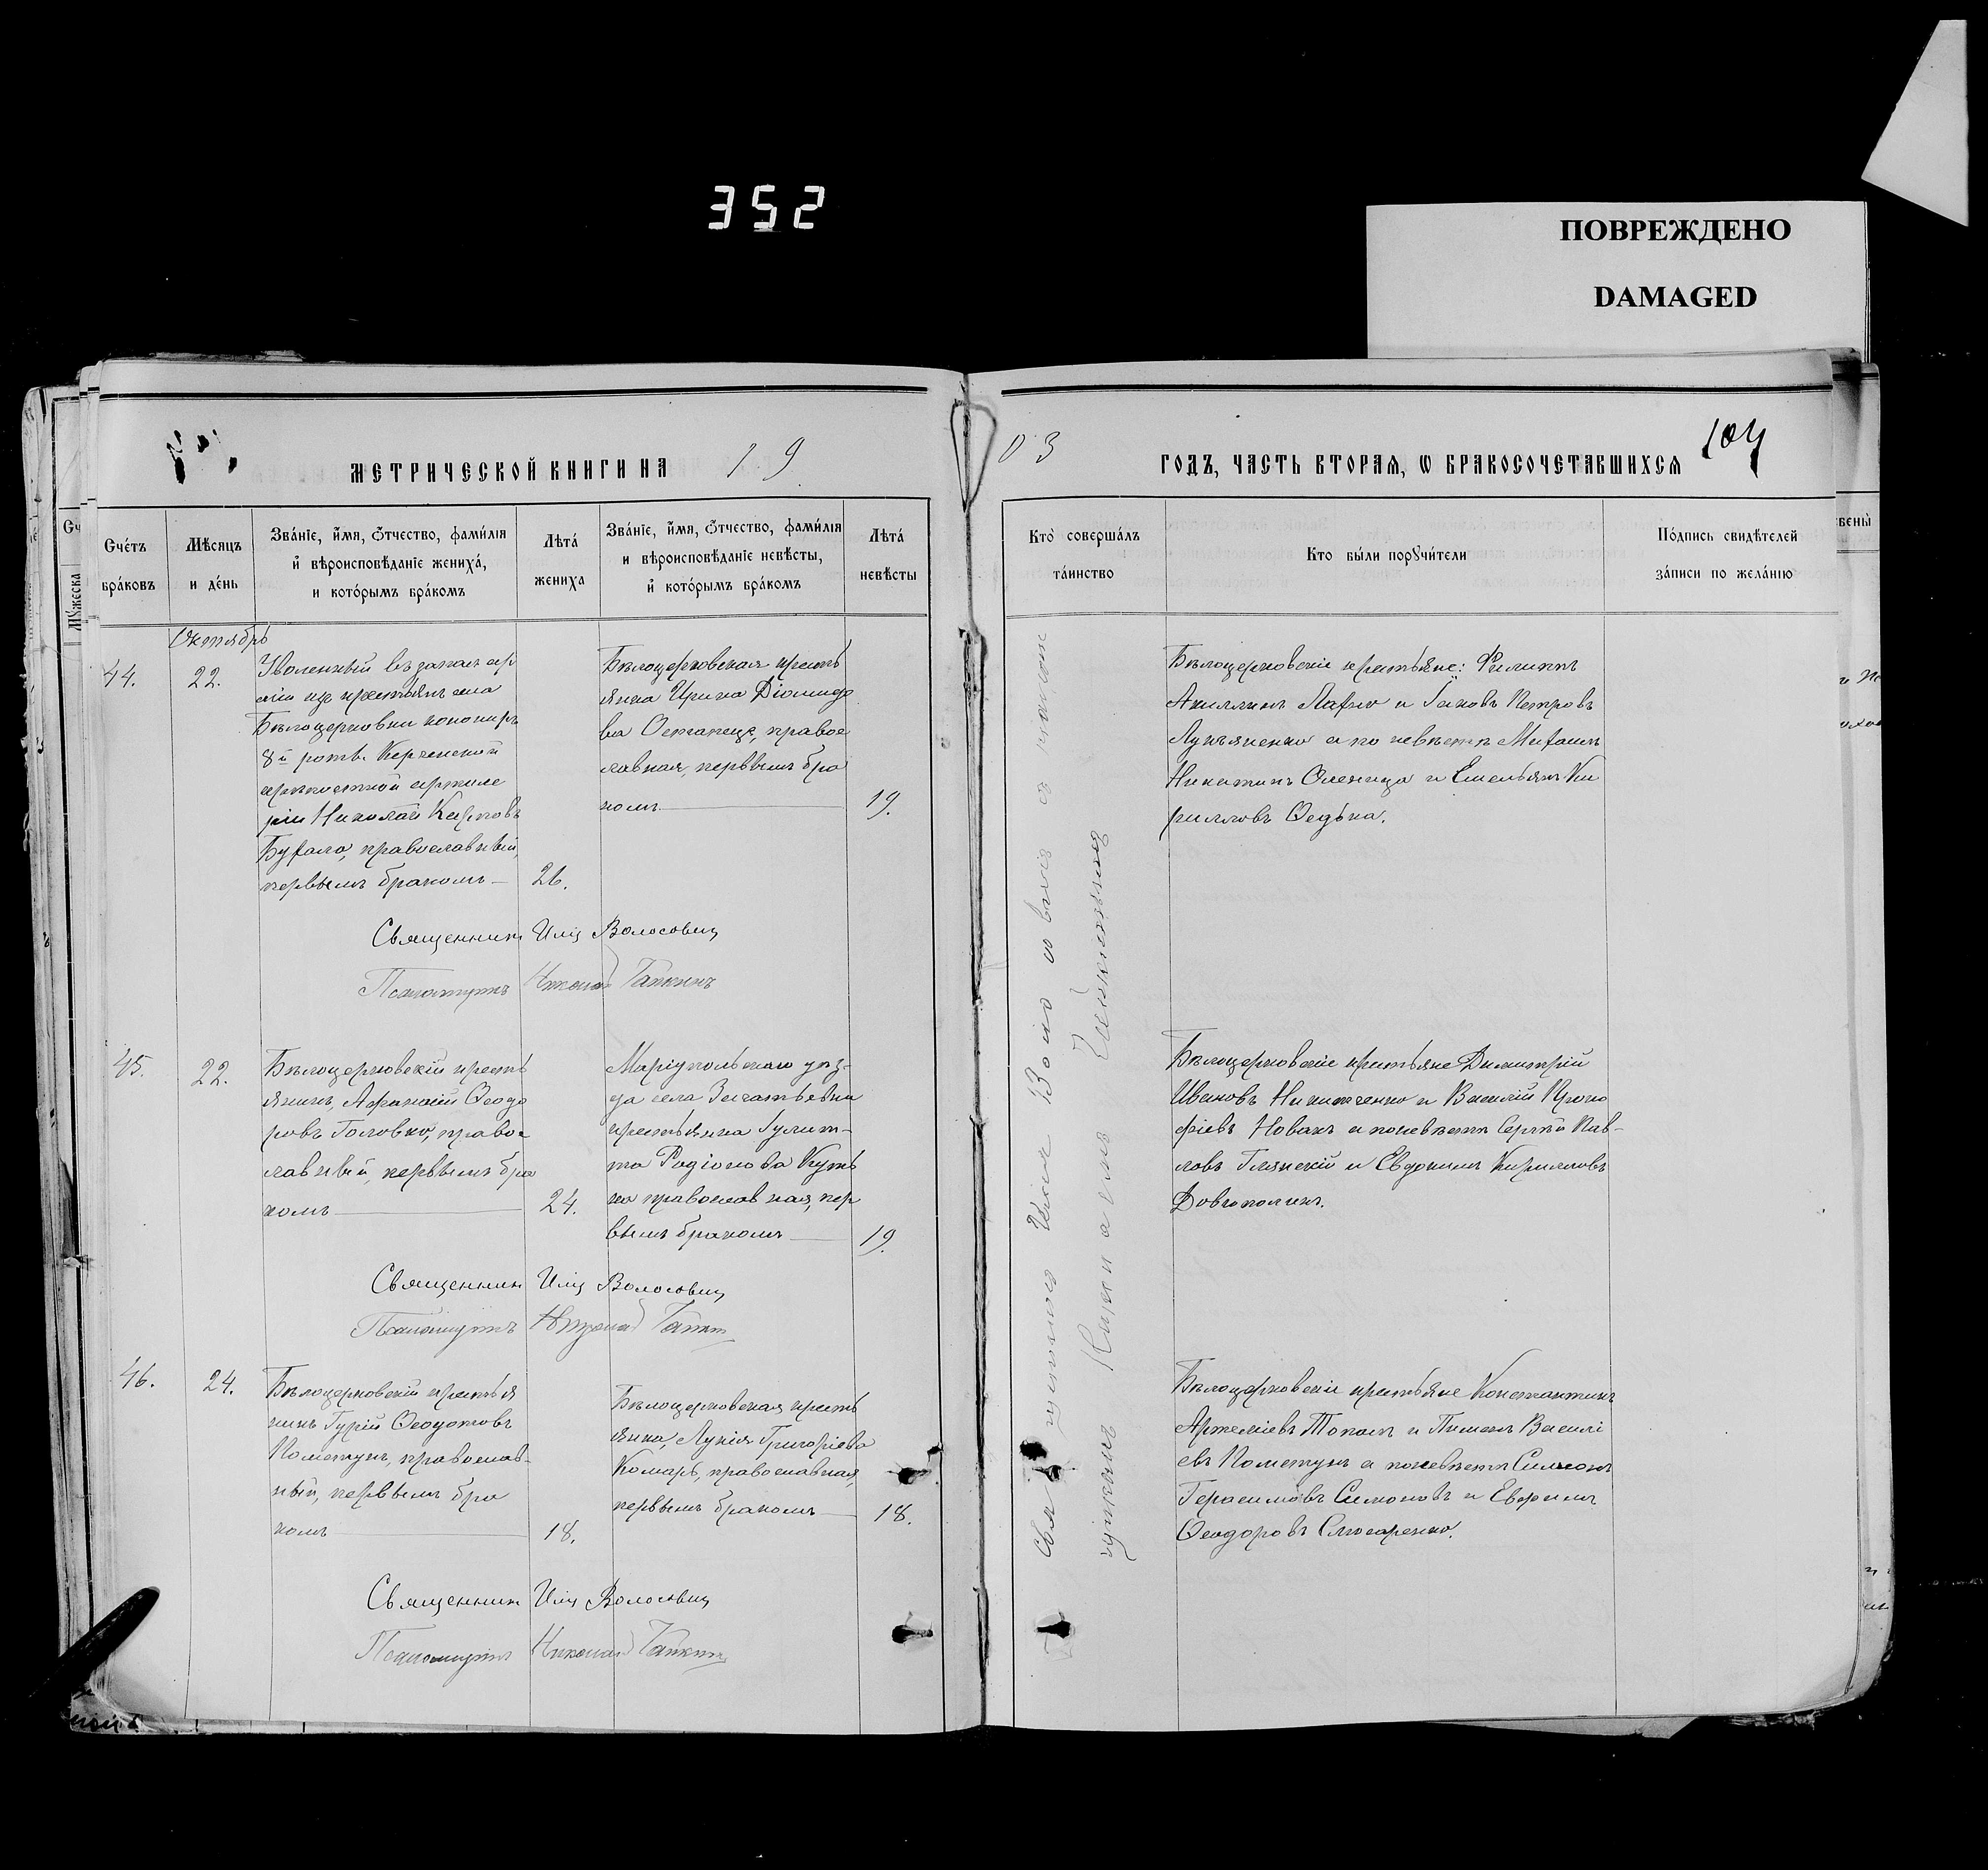 352
ПОВРЕЖДЕНО
DAMAGED
МЕТРИЧЕСКОЙ КНИГИ НА 19
03 ГОДЪ, ЧАСТЬ ВТОРАЯ, Ѡ БРАКОСОЧЕТАВШИХСЯ 104
Счéтъ
брáковъ
Мѣсяцъ
и дéнь
Звáнїе, и́мя, ѻ҆́тчество, фами́лїя
и҆ вѣроисповѣ́данїе женихá,
и котóрымъ брáкомъ
Лѣтá
жениха
Звáнїе, и́мя, ѻ҆́тчество, фами́лїя
и вѣроисповѣ́данїе невѣ́сты,
и҆ котóрымъ брáкомъ
Лѣтá
невѣ́сты
Ктò совершáлъ
тáинство
Кто бы́ли порꙋчи́тели
Пóдпись свидѣ́телей
зáписи по желáнїю
Октябрь
44.
22.
Уволенный въ запас ар
міи изъ крестьянъ села
Бѣлоцерковки канониръ
8й роты Керченской
крѣпостной артиле
ріи Николай Карповъ
Буфало, православный,
первымъ бракомъ
26.
Бѣлоцерковская кресть
янка Ирина Діомидо
ва Остапец, правос
лавная, первымъ бра
комъ
19.
Бѣлоцерковскіе крестьяне: Филиппъ
Акиллинъ Лафно и Іаковъ Петровъ
Лукьяненко а по невѣстѣ Михаилъ
Никитинъ Оленица и Емельянъ Ки
рилловъ Федька.
Священник Илія Волосовиц
Псаломщикъ Николай Гапкинъ
45.
22.
Бѣлоцерковскій кресть
янинъ, Афанасій Феодо
ровъ Головко, правос
лавный, первымъ бра
комъ
24.
Маріупольскаго уѣз-
да села Зачатьевки
крестьянка Іулит-
та Родіонова Кузь
православная, пер
вымъ бракомъ
19.
Бѣлоцерковскіе крестьяне Димитрій
Ивановъ Никитченко и Василій Проко
фіевъ Новакъ а по невѣстѣ Сергѣй Пав-
ловъ Глянскій и Евдокимъ Кирилловъ
Довгополик.
Священник Илія Волосовиц
Псаломщикъ Николай Гапкин
46.
24.
Бѣлоцерковскій крестья
нинъ Гурій Феодотовъ
Пометун, православ-
ный, первымъ бра
комъ
18.
Бѣлоцерковская кресть
янка, Лукія Григоріева
Комарь, православная,
первымъ бракомъ
18.
Бѣлоцерковскіе крестьяне Константинъ
Артеміевъ Топал и Пимен Василі
евъ Пометун а по невѣстѣ Симеонъ
Герасимовъ Симоновъ и Евфимъ
Феодоровъ Слюсаренко.
Священник Илія Волосовиц
Псаломщикъ Николай Гапкин
Священник Илія
псаломщик